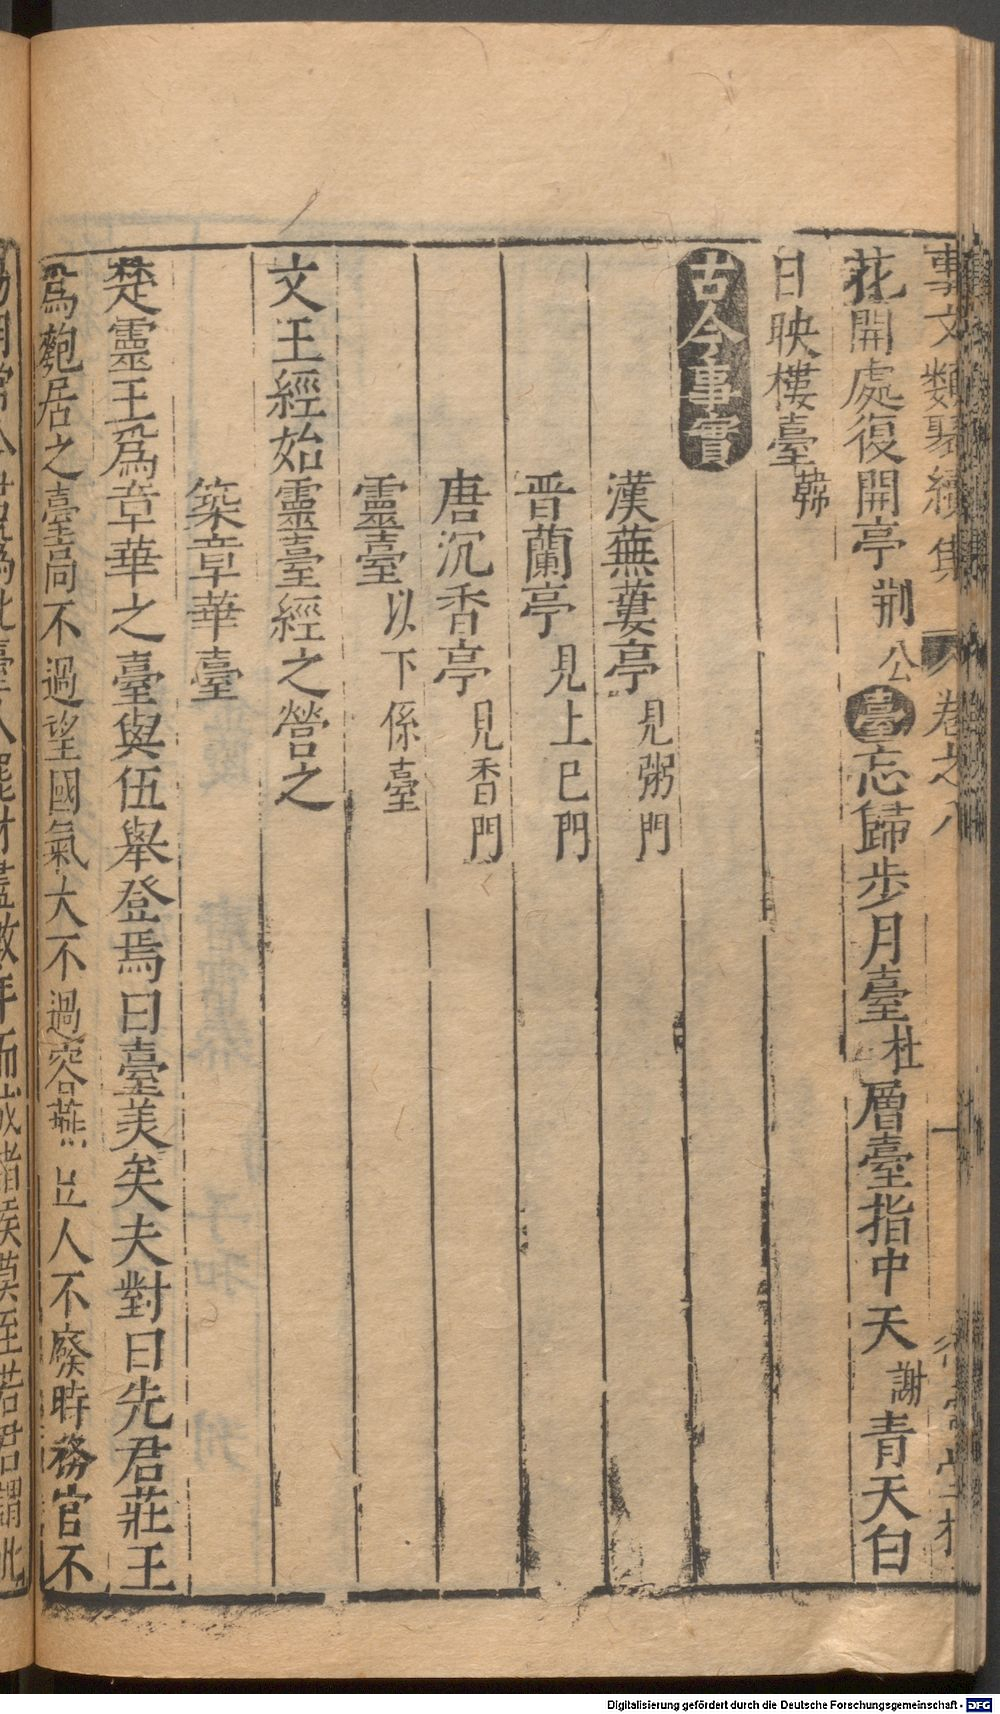 事文類聚續集 卷之八
花開處復開亭荆公臺忘歸步月臺杜層臺指中天謝青天白
日映樓臺韓
古今事實
漢蕪蔞亭見粥門
晋蘭亭見上巳門
唐沉香亭見香門
靈臺以下係臺
文王經始靈臺經之營之
築章華臺
楚靈王爲章華之臺與伍舉登焉曰臺美矣夫對曰先君莊王
爲匏居之臺高不過望國氣大不過容燕豆人不廢時務官不
Digitalisierung gefördert durch die Deutsche Forschungsgemeinschaft - DFG